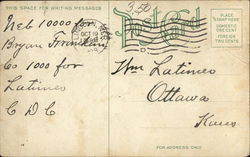 THIS SPACE FOR WRITING MESSAGES
3-52
Post Card
PLACE
STAMP HERE
DOMESTIC
ONE CENT
FOREIGN
TWO CENTS
OCT 19
Neb 10000 for
Bryan Franklin
Co 1000 for
Latimer
C D C
D
Wm Latimer
Ottawa
Kans
FOR ADDRESS ONLY